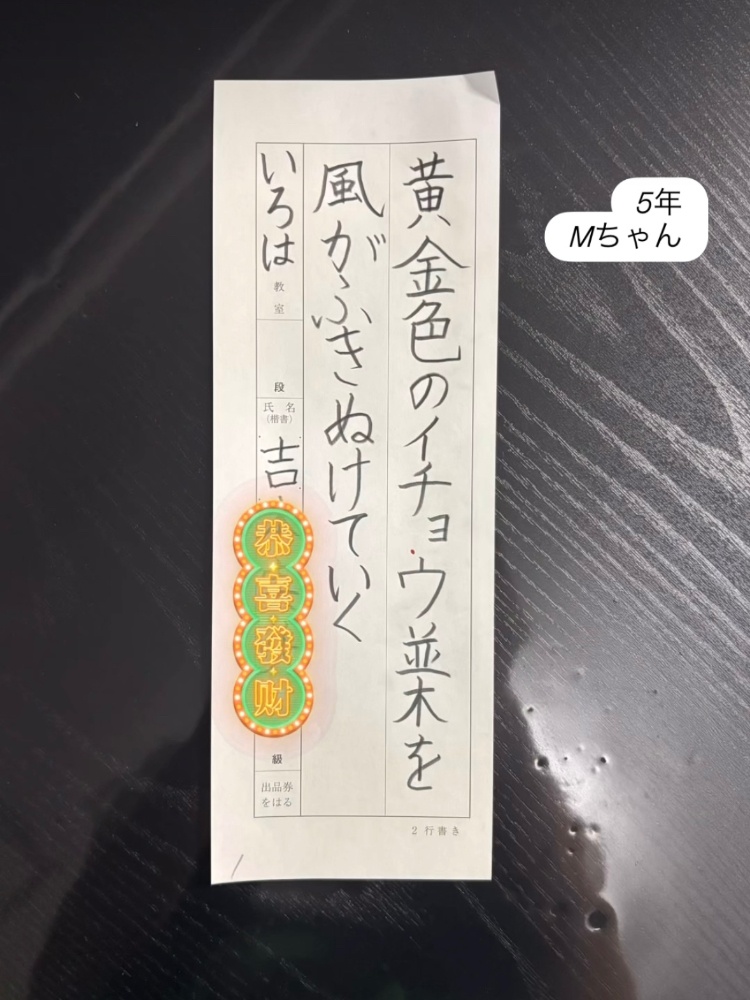 黄金色のイチョウ並木を
風がふきぬけていく
いろは
教室
段
氏名
(楷書)
吉
恭喜發财
級
出品券
をはる
2行書き
5年
Mちゃん